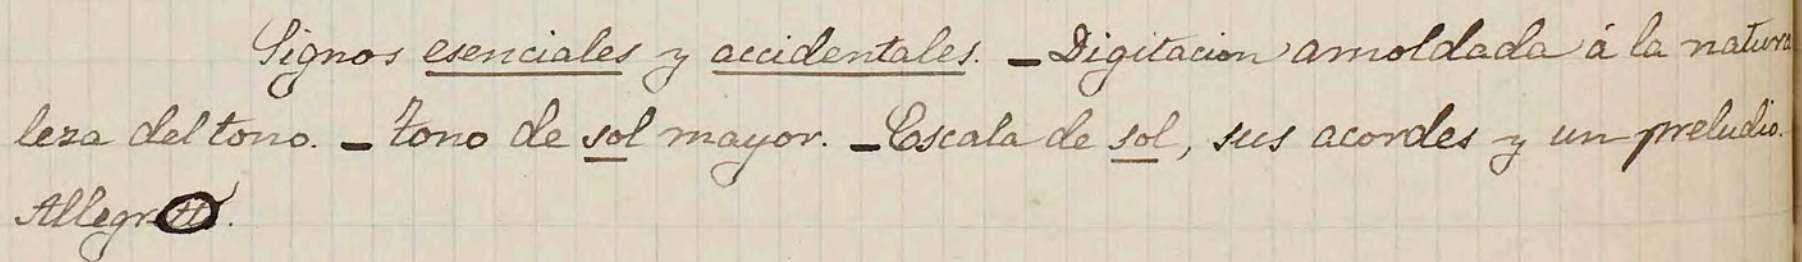 Signos esenciales y accidentales. - Digitacion amoldada á la natura
leza del tono. - tono de sol mayor. - Escala de sol, sus acordes y un preludio.
Allegro.